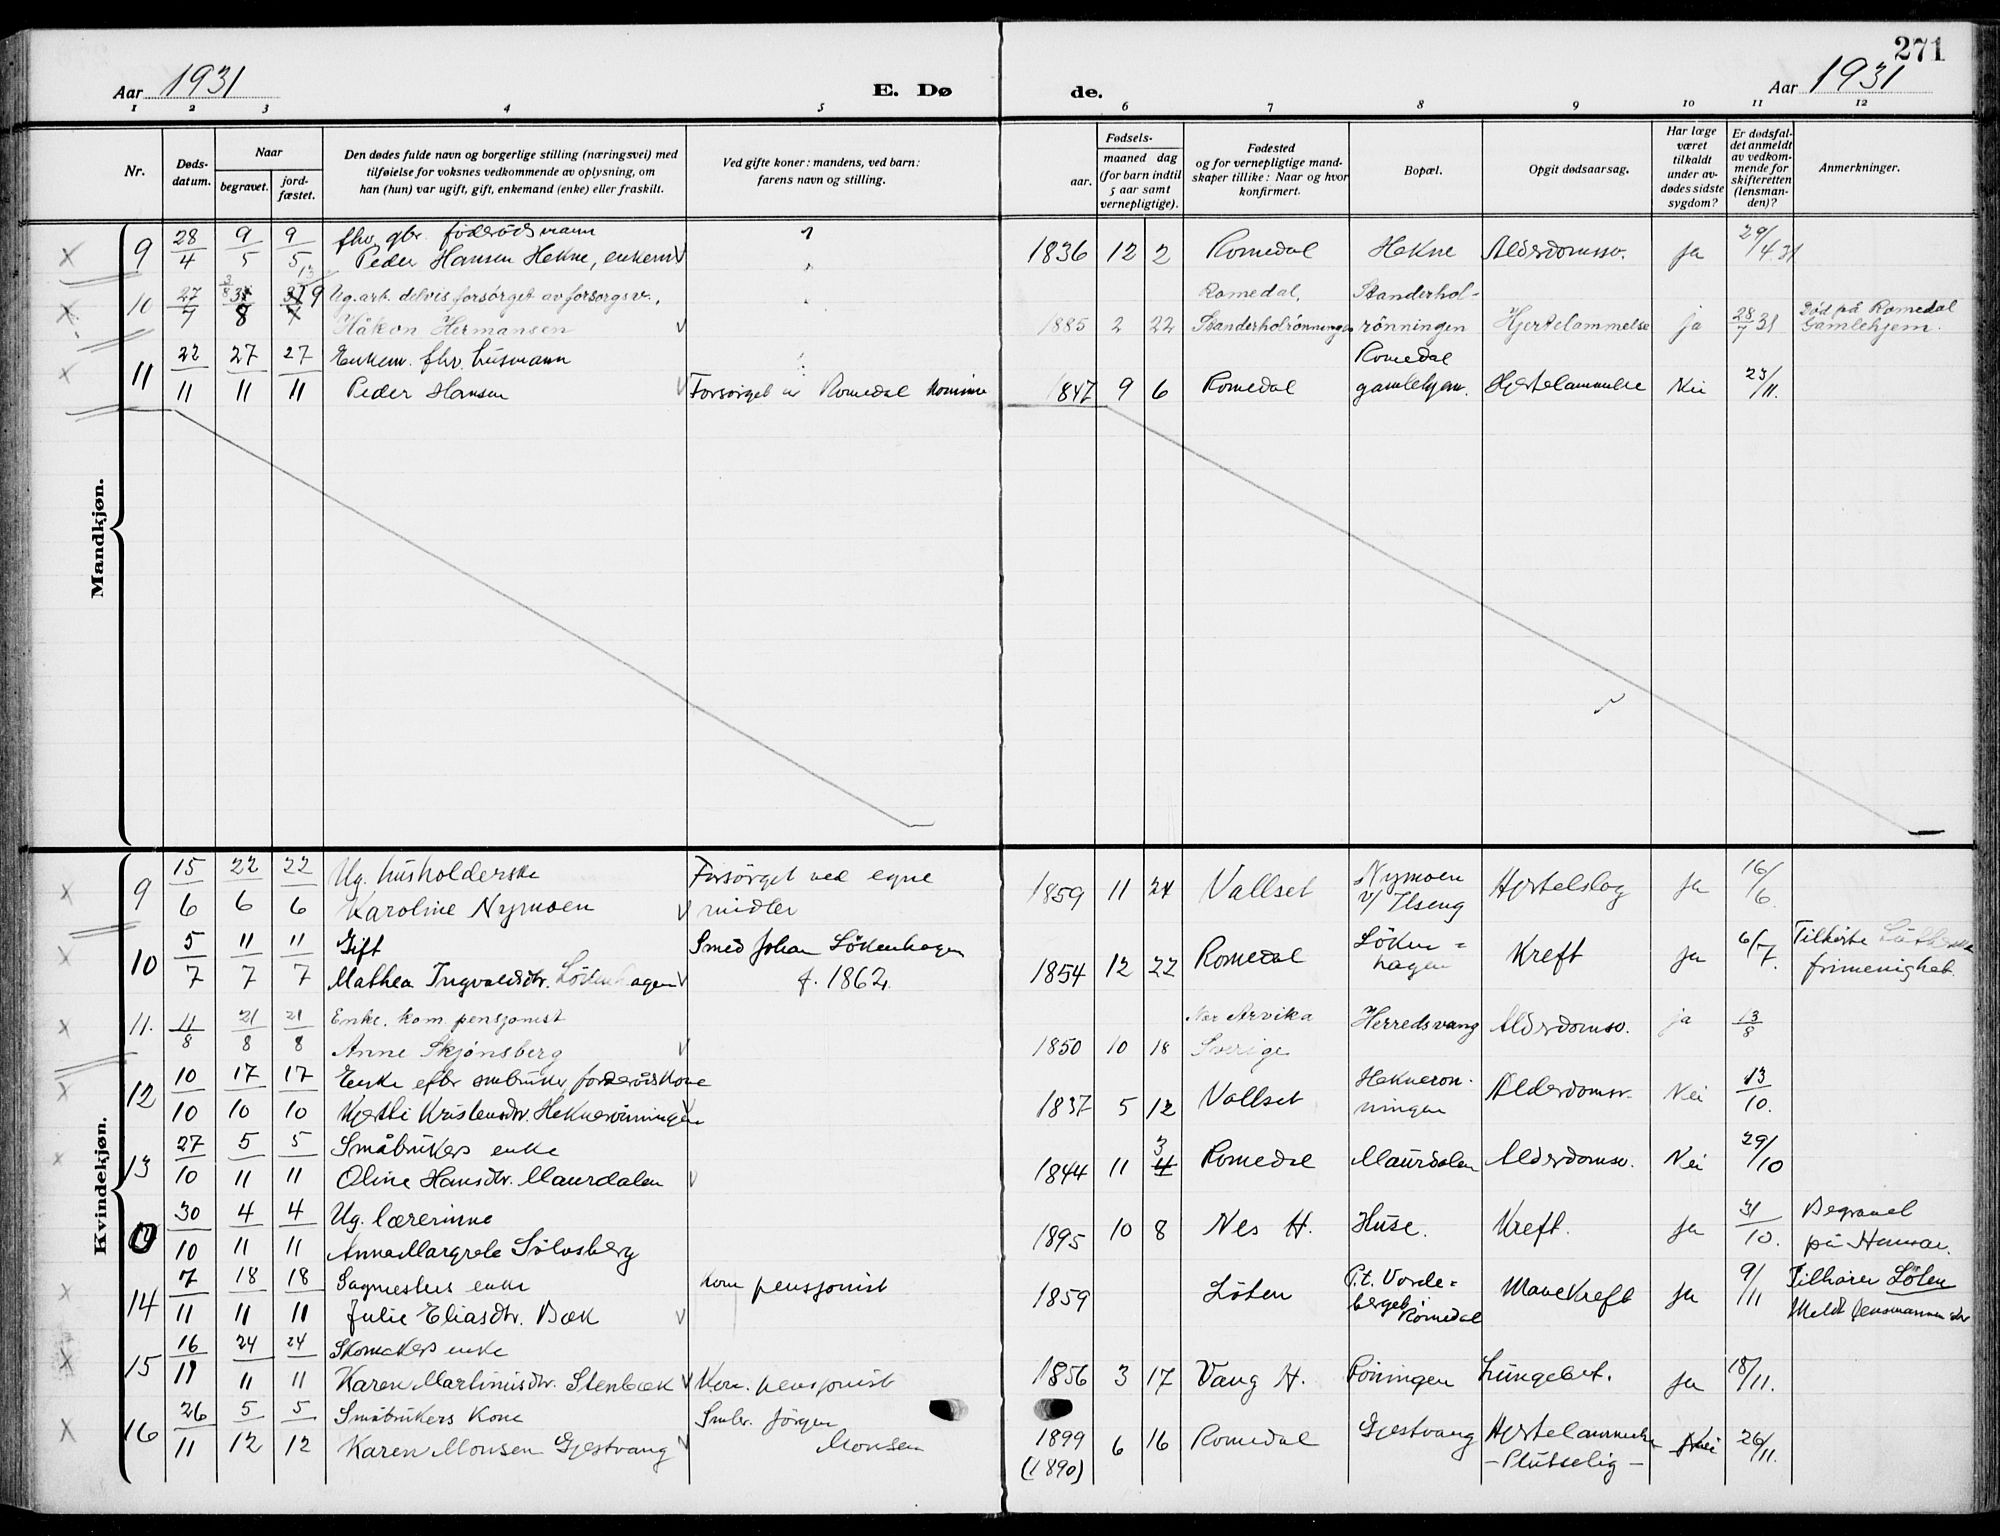 271
Aar 1931
E. Dø
de.
Aar 1931
1 2 3 4 5 6 7 8 9 10 11 12
Nr.
Døds-
datum.
Naar
begravet.
jord-
fæstet.
Den dødes fulde navn og borgerlige stilling (næringsvei) med
tilføielse for voksnes vedkommende av oplysning, om
han (hun) var ugift, gift, enkemand (enke) eller fraskilt.
Ved gifte koner: mandens, ved barn:
farens navn og stilling.
Fødsels-
aar.
maaned dag
(for barn indtil
5 aar samt
vernepligtige).
Fødested
og for vernepligtige mand-
skaper tillike: Naar og hvor
konfirmert.
Bopæl.
Opgit dødsaarsag.
Har læge
været
tilkaldt
under av-
dødes sidste
sygdom?
Er dødsfal-
det anmeldt
av vedkom-
mende for
skifteretten
(lensman-
den)?
Anmerkninger.
Mandkjøn.
9 28/4 9/5 9/5 fhv. gbr. föderådsmann
Peder Hansen Hekne, enkem. 1836 12 2 Romedal Hekne Alderdomssv. Ja 29/4.31
10 27/7 Ug. arb. delvis forsørget av forsorgsv.,
Håkon Hermansen 1885 2 22 Romedal, Skanderholrønningen Skanderhol-
rönningen Hjertelammelse ja 28/7 31 Död på Romedal
Gamlehjem.
11 22/11 27/11 27/11 Enkem. fhv. husmann
Peder Hansen Forsörget av Romedal komune 1847 9 6 Romedal Romedal
gamlehjem. Hjertelammelse Nei 23/11.
Kvindekjøn.
9 15/6 22/6 22/6 Ug. husholderske
Karoline Nymoen Forsörget ved egne
midler 1859 11 24 Vallset Nymoen
v/ Ilseng Hjerteslag Ja 16/6.
10 5/7 11/7 11/7 Gift
Mathea Ingvaldsdtr. Lökenhagen Smed Johan Lökenhagen
f. 1862. 1854 12 22 Romedal Löken=
hagen Kreft Ja 6/7. Tilhörte Lutherske
frimenighet.
11. 11/8 21/8 21/8 Enke. kom. pensjonist
Anne Skjønsberg 1850 10 18 Nær Arvika
Sverige Herredsvang Alderdomsv. ja 13/8
12 10/10 17/10 17/10 Enke efter småbruker, föderådskone
Kjersti Kristensdtr. Heknerönningen 1837 5 12 Vallset Heknerön-
ningen Alderdomsv. Nei 13/10.
13 27/10 5/11 5/11 Småbrukers enke
Oline Hansdtr. Maurdalen 1844 11 3 Romedal Maurdalen Alderdomsv. Nei 29/10
0 30/10 4/11 4/11 Ug. lærerinne
Anna Margrete Sölvsberg 1895 10 8 Nes H. Huse. Kreft. Ja 31/10. Begravet
på Hamar.
14 7/11 18/11 18/11 Sagmesters enke
Julie Eliasdtr. Bæk Kom pensjonist 1859 Löten P.t. Vorde=
berget Romedal Mavekreft Ja 9/11 Tilhörer Löten
Meldt lensmannen der
15 16/11 24/11 24/11 Skomakers enke
Karen Martinusdtr. Stenbæk Kom. pensjonist 1856 3 17 Vang H. Röningen Lungebet. Ja 18/11.
16 26/11 5/12 5/12 Småbrukers kone
Karen Monsen Gjestvang Smbr. Jörgen
Monsen 1899
(1890) 6 16 Romedal Gjestvang Hjertelammelse
- Plutselig - Nei 26/11.